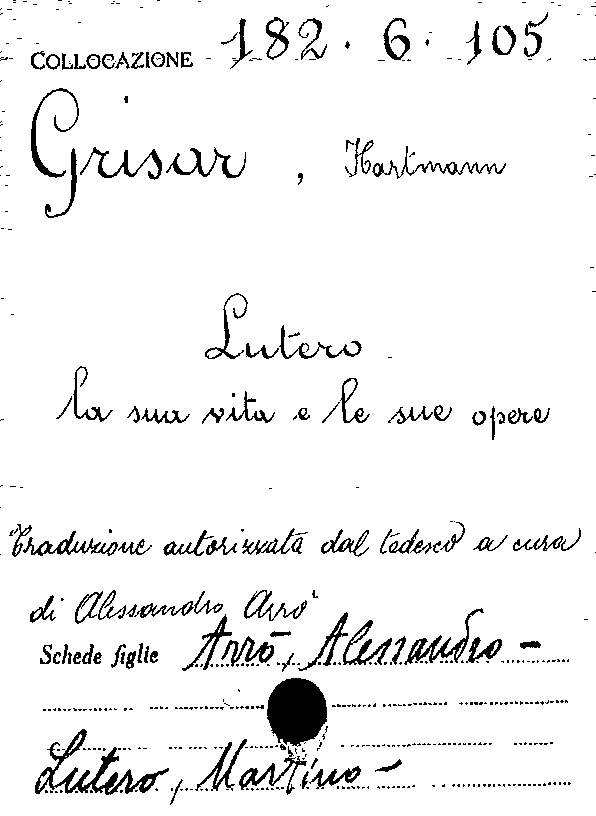 COLLOCAZIONE 182. 6. 105
Grisar, Hartmann
Lutero
la sua vita e le sue opere
Traduzione autorizzata dal tedesco a cura
di Alessandro Arrò
Schede figlie Arrò, Alessandro -
Lutero, Martino -